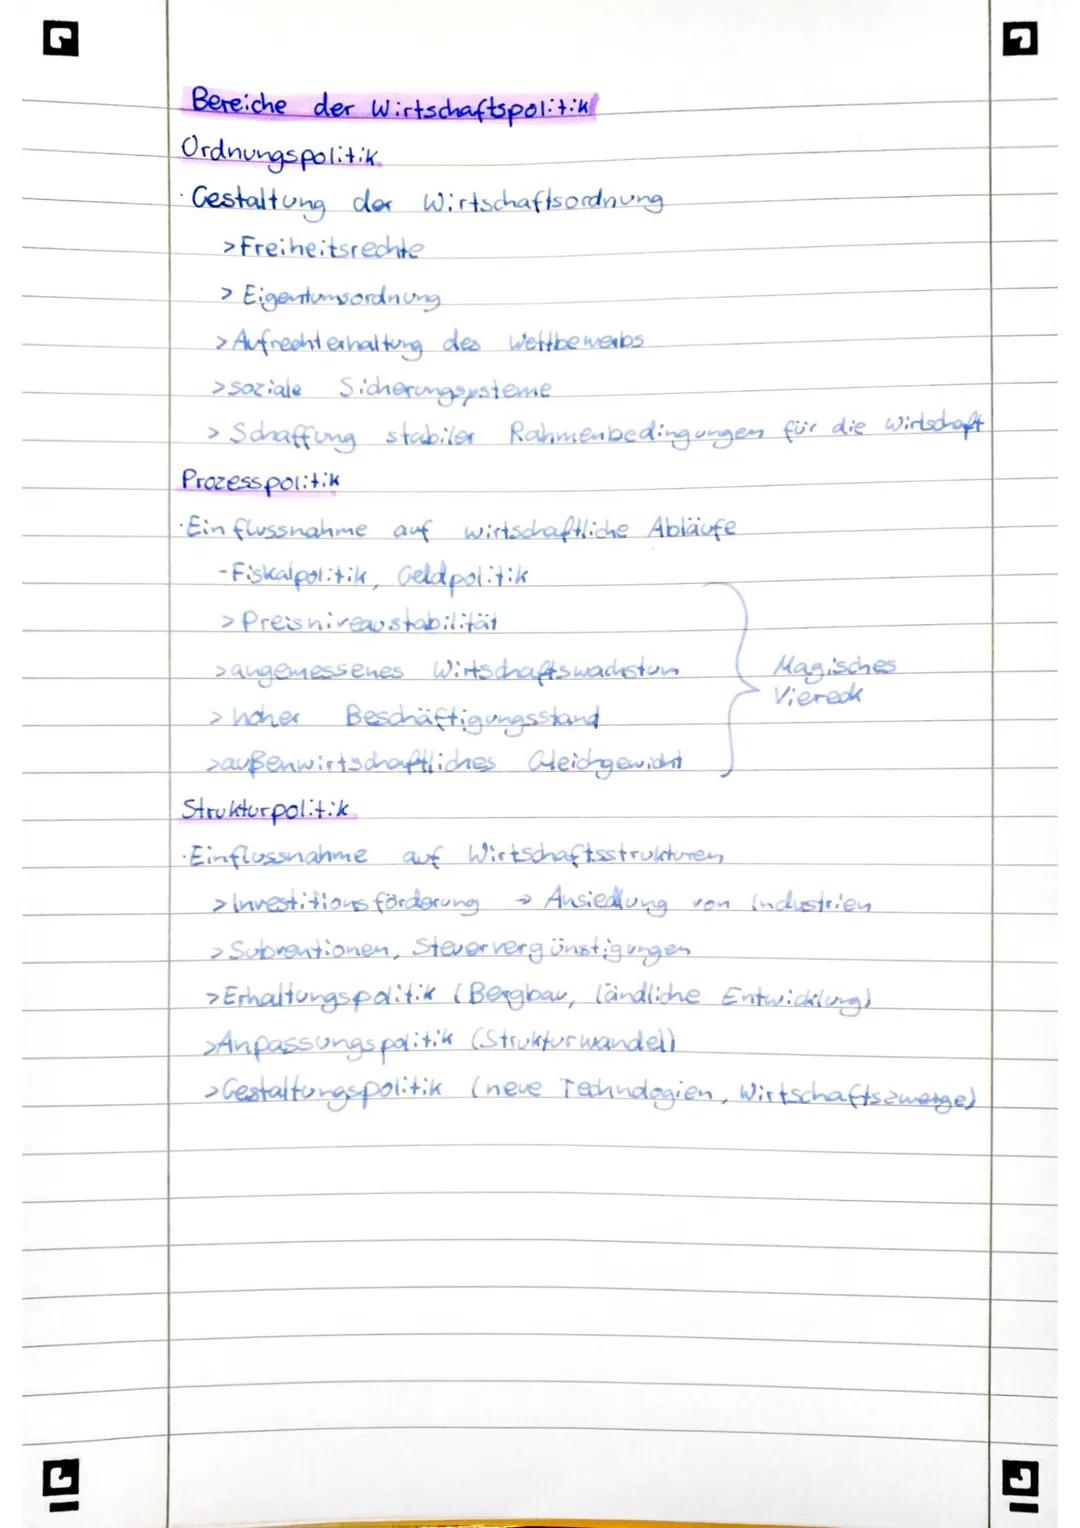 Bereiche der Wirtschaftspolitik
Ordnungspolitik
· Gestaltung der Wirtschaftsordnung
> Freiheitsrechte
> Eigentumsordnung
> Aufrechterhaltung des Wettbewerbs
> soziale Sicherungssysteme
> Schaffung stabiler Rahmenbedingungen für die Wirtschaft
Prozesspolitik
· Einflussnahme auf wirtschaftliche Abläufe
- Fiskalpolitik, Geldpolitik
> Preisniveaustabilität
> angemessenes Wirtschaftswachstum
> hoher Beschäftigungsstand
> außenwirtschaftliches Gleichgewicht
Magisches
Viereck
Strukturpolitik
· Einflussnahme auf Wirtschaftsstrukturen
> Investitionsförderung → Ansiedlung von Industrien
> Subventionen, Steuervergünstigungen
> Erhaltungspolitik (Bergbau, ländliche Entwicklung)
> Anpassungspolitik (Strukturwandel)
> Gestaltungspolitik (neue Technologien, Wirtschaftszweige)